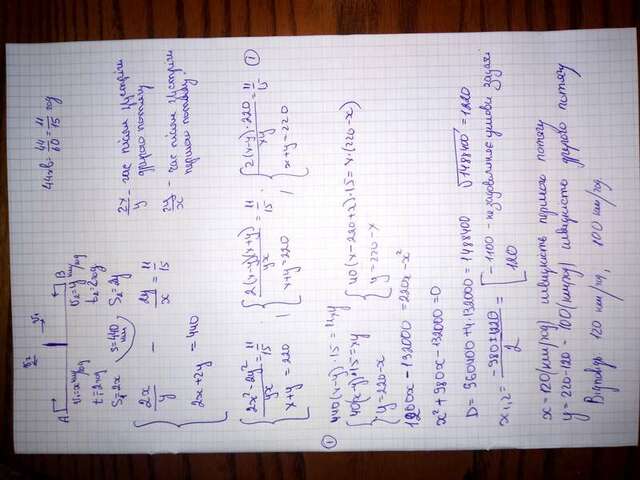 v₂ → v₁
44хв = 44/60 = 11/15 год
A B
v₁ = x км/год v₂ = y км/год
t₁ = 2год t₂ = 2год
S₁ = 2x S = 440 км S₂ = 2y
2x/y - 2y/x = 11/15
2x + 2y = 440
2x/y - час після зустрічі другого потягу
2y/x - час після зустрічі першого потягу.
{ (2x² - 2y²)/yx = 11/15 { 2(x-y)(x+y)/yx = 11/15 { 2(x-y)·220/xy = 11/15 ①
x + y = 220 | x + y = 220 | x + y = 220
① 440(x-y)·15 = 11xy
{ 40(x-y)·15 = xy { 40(x - 220 + x)·15 = x·(220 - x)
y = 220 - x y = 220 - x
1200x - 132000 = 220x - x²
x² + 980x - 132000 = 0
D = 960400 + 4·132000 = 1488400 √1488400 = 1220
x₁,₂ = (-980 ± 1220)/2 = [ -1100 - не задовольняє умови задачі
120
x = 120 (км/год) швидкість першого потягу
y = 220 - 120 = 100 (км/год) швидкість другого потягу
Відповідь: 120 км/год, 100 км/год.